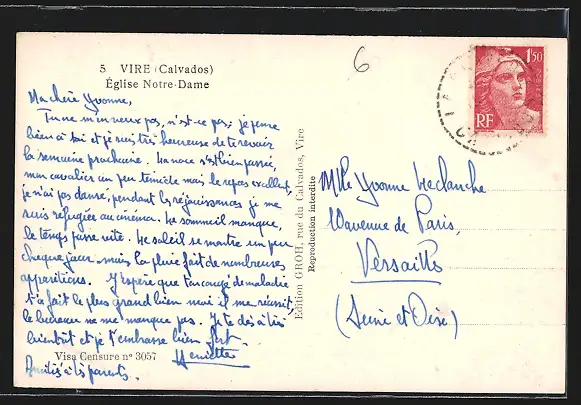 5 VIRE (Calvados)
Église Notre-Dame
Ma chère Yvonne,
Tu ne m'en veux pas, n'est-ce pas; je pense
bien à toi et je suis très heureuse de te revoir
la semaine prochaine. La noce s'est bien passée,
mon cavalier un peu timide mais le repas excellent,
je n'ai pas dansé, pendant les réjouissances je me
suis réfugiée au cinéma. Le sommeil manque,
le temps passe vite. Le soleil se montre un peu
chaque jour, mais la pluie fait de nombreuses
apparitions. J'espère que ton congé de maladie
t'a fait le plus grand bien moi il me réussit,
le bureau ne me manque pas. Je te dis à très
bientôt et je t'embrasse bien fort.
Henriette
Visa Censure n° 3057
Amitiés à tes parents.
Edition GROH, rue du Calvados, Vire
Reproduction interdite
6
1f50
RF
Mlle Yvonne Leclanche
10 avenue de Paris,
Versailles
(Seine et Oise)